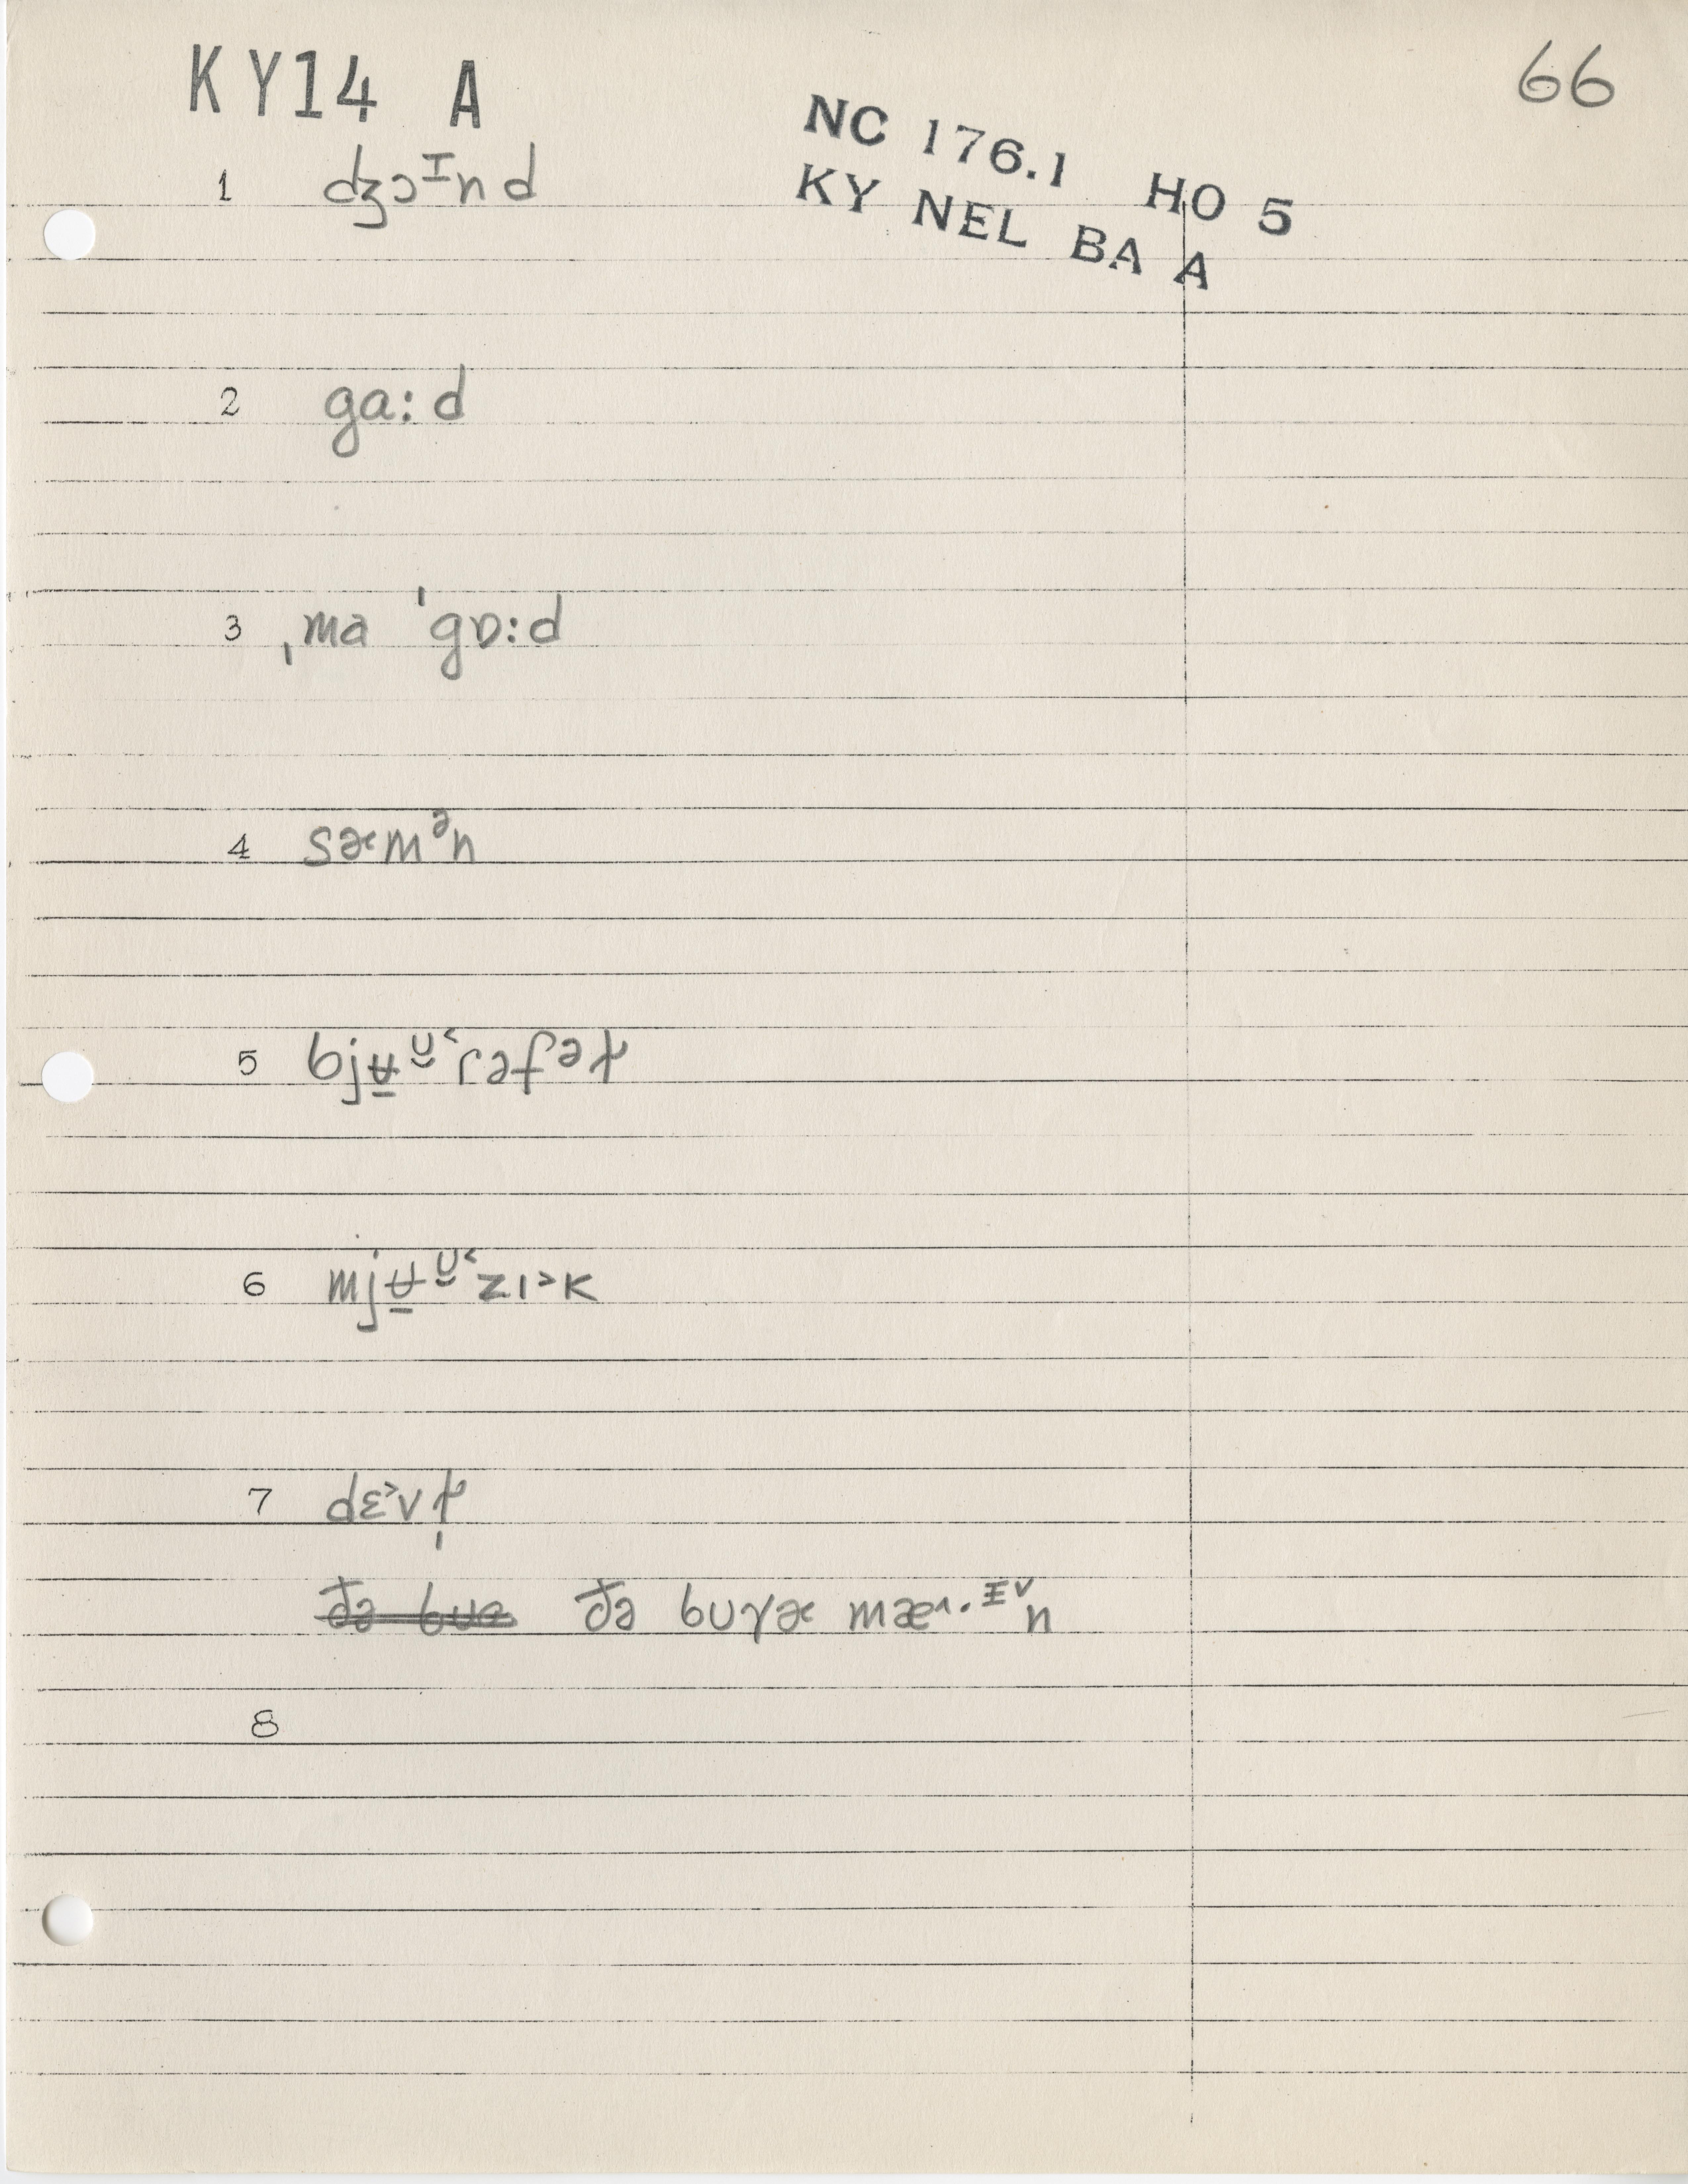 KY14 A
66
NC 176.1 HO 5
KY NEL BA A
1 dʒɔᶦnd
2 ga:d
3 ˌma ˈgɒ:d
4 sæmᵊn
5 bjʉ̱ᶷ̯˂rəfəɫ
6 mjʉ̱ᶷ̯˂zɪ˃k
7 dɛ˃vɫ̩
ðə bʊɣə mæ˄·ᵻ˅n
8